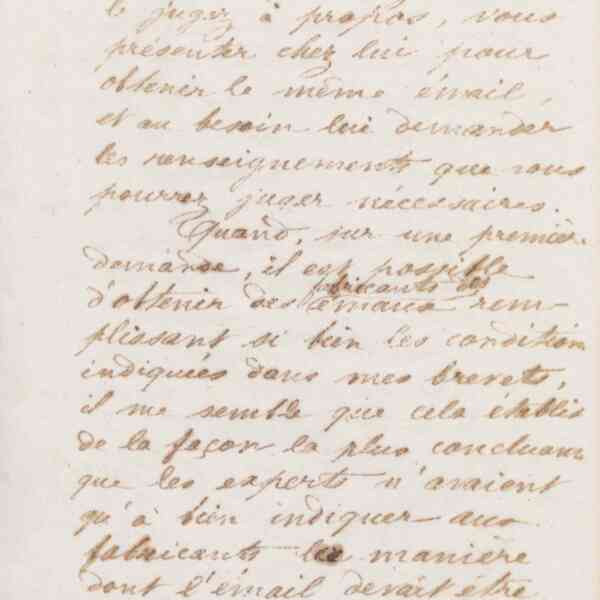 le jugez à propos, vous
présenter chez lui pour
obtenir le même émail,
et au besoin lui demander
les renseignements que vous
pourrez juger nécessaires.
Quand, sur une première
demande, il est possible
fabricants des
d'obtenir des émaux rem-
plissant si bien les condition
indiquées dans mes brevets,
il me semble que cela établis
de la façon la plus concluan
que les experts n'avaient
qu'à bien indiquer aux
fabricants la manière
dont l'émail devait être